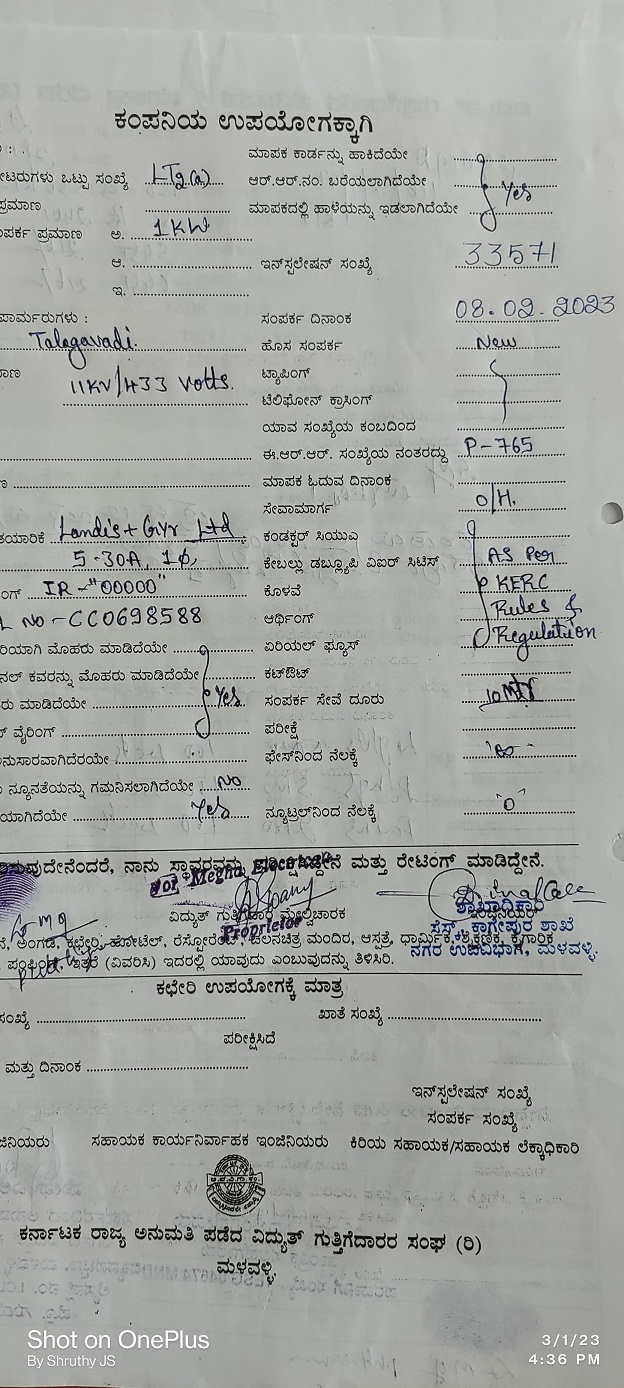 ಕಂಪನಿಯ ಉಪಯೋಗಕ್ಕಾಗಿ
ಮಾಪಕ ಕಾರ್ಡನ್ನು ಹಾಕಿದೆಯೇ
ಟರುಗಳು ಒಟ್ಟು ಸಂಖ್ಯೆ LT2(a) ಆರ್.ಆರ್.ನಂ. ಬರೆಯಲಾಗಿದೆಯೇ Yes
ಪ್ರಮಾಣ ಮಾಪಕದಲ್ಲಿ ಹಾಳೆಯನ್ನು ಇಡಲಾಗಿದೆಯೇ
ಪರ್ಕ ಪ್ರಮಾಣ ಅ. 1KW
ಆ. ಇನ್‌ಸ್ಟಲೇಷನ್ ಸಂಖ್ಯೆ 33571
ಇ.
ಪಾರ್ಮರುಗಳು : ಸಂಪರ್ಕ ದಿನಾಂಕ 08.02.2023
Talagavadi ಹೊಸ ಸಂಪರ್ಕ New
ಾಣ 11KV/433 Volts. ಟ್ಯಾಪಿಂಗ್
ಟೆಲಿಫೋನ್ ಕ್ರಾಸಿಂಗ್
ಯಾವ ಸಂಖ್ಯೆಯ ಕಂಬದಿಂದ
ಈ.ಆರ್.ಆರ್. ಸಂಖ್ಯೆಯ ನಂತರದ್ದು P-765
ಮಾಪಕ ಓದುವ ದಿನಾಂಕ
ಸೇವಾಮಾರ್ಗ O/H.
ತಯಾರಿಕೆ Landis + Gyr Ltd ಕಂಡಕ್ಟರ್ ಸಿಯುಎ
5-30A, 1Φ, ಕೇಬಲ್ಲು ಡಬ್ಲ್ಯೂಪಿ ವಿಐರ್ ಸಿಟಿಸ್ AS Per
ಂಗ್ IR-"00000" ಕೊಳವೆ KERC
L NO-CC0698588 ಆರ್ಥಿಂಗ್ Rules &
ರಿಯಾಗಿ ಮೊಹರು ಮಾಡಿದೆಯೇ ಏರಿಯಲ್ ಫ್ಯೂಸ್ Regulation
ನಲ್ ಕವರನ್ನು ಮೊಹರು ಮಾಡಿದೆಯೇ ಕಟ್‌ಔಟ್
ರು ಮಾಡಿದೆಯೇ Yes. ಸಂಪರ್ಕ ಸೇವೆ ದೂರು 10 Mtr
ವೈರಿಂಗ್ ಪರೀಕ್ಷೆ
ನುಸಾರವಾಗಿದೆರಯೇ ಫೇಸ್‌ನಿಂದ ನೆಲಕ್ಕೆ
ನ್ಯೂನತೆಯನ್ನು ಗಮನಿಸಲಾಗಿದೆಯೇ NO
ಯಾಗಿದೆಯೇ Yes ನ್ಯೂಟ್ರಲ್‌ನಿಂದ ನೆಲಕ್ಕೆ "0"
ಪುದೇನೆಂದರೆ, ನಾನು ಸ್ಥಾವರವನ್ನು ಪರೀಕ್ಷಿಸಿದ್ದೇನೆ ಮತ್ತು ರೇಟಿಂಗ್ ಮಾಡಿದ್ದೇನೆ.
For Megha Electricals
ವಿದ್ಯುತ್ ಗುತ್ತಿಗೆದಾರ ಮೇಲ್ವಿಚಾರಕ ಶಾಖಾಧಿಕಾರಿ
Proprietor ಸೆಸ್ಕ್, ಕಾಗೇಪುರ ಶಾಖೆ
ಅಂಗಡಿ, ಕಛೇರಿ, ಹೋಟೆಲ್, ರೆಸ್ಟೋರೆಂಟ್, ಚಲನಚಿತ್ರ ಮಂದಿರ, ಆಸ್ಪತ್ರೆ, ಧಾರ್ಮಿಕ, ಶೈಕ್ಷಣಿಕ, ಕೈಗಾರಿಕ
ಇತರೆ (ವಿವರಿಸಿ) ಇದರಲ್ಲಿ ಯಾವುದು ಎಂಬುವುದನ್ನು ತಿಳಿಸಿರಿ. ನಗರ ಉಪವಿಭಾಗ, ಮಳವಳ್ಳಿ.
ಕಛೇರಿ ಉಪಯೋಗಕ್ಕೆ ಮಾತ್ರ
ಸಂಖ್ಯೆ ಖಾತೆ ಸಂಖ್ಯೆ
ಪರೀಕ್ಷಿಸಿದೆ
ಮತ್ತು ದಿನಾಂಕ
ಇನ್‌ಸ್ಪಲೇಷನ್ ಸಂಖ್ಯೆ
ಸಂಪರ್ಕ ಸಂಖ್ಯೆ
ಜಿನಿಯರು ಸಹಾಯಕ ಕಾರ್ಯನಿರ್ವಾಹಕ ಇಂಜಿನಿಯರು ಕಿರಿಯ ಸಹಾಯಕ/ಸಹಾಯಕ ಲೆಕ್ಕಾಧಿಕಾರಿ
ಕರ್ನಾಟಕ ರಾಜ್ಯ ಅನುಮತಿ ಪಡೆದ ವಿದ್ಯುತ್ ಗುತ್ತಿಗೆದಾರರ ಸಂಘ (ರಿ)
ಮಳವಳ್ಳಿ.
Shot on OnePlus 3/1/23
By Shruthy JS 4:36 PM